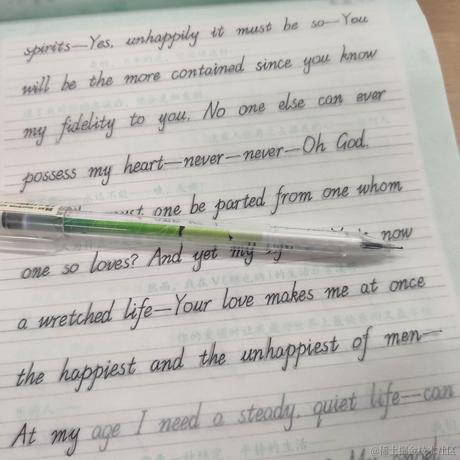 spirits—Yes, unhappily it must be so—You
will be the more contained since you know
my fidelity to you. No one else can ever
possess my heart—never—never—Oh God.
one be parted from one whom
one so loves? And yet my now
a wretched life—Your love makes me at once
the happiest and the unhappiest of men—
At my age I need a steady, quiet life—can
@稀土掘金技术社区